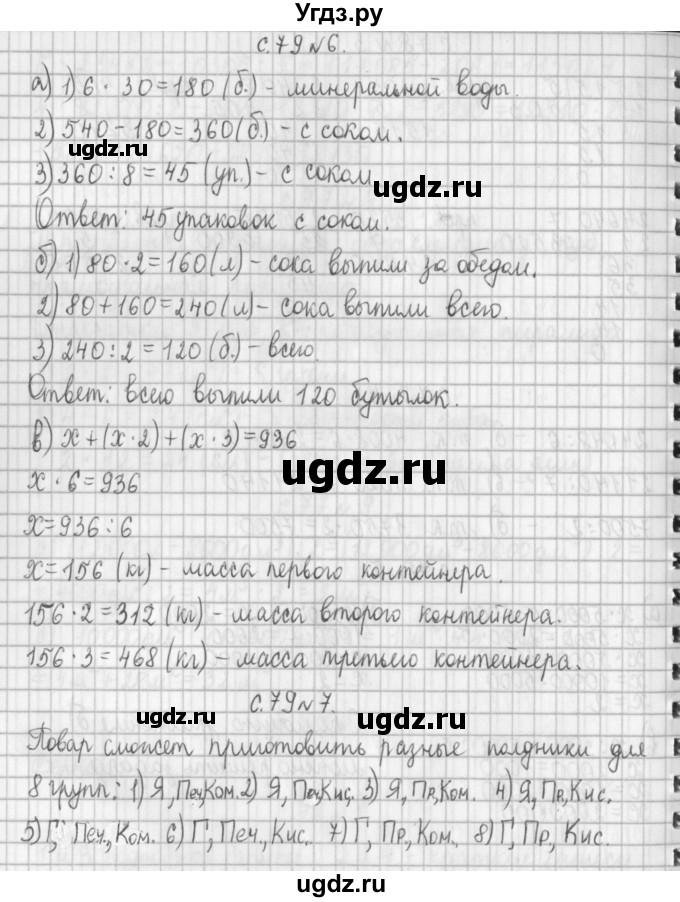 Угдз.ру
с.79 №6.
а) 1) 6 · 30 = 180 (б.) - минеральной воды.
2) 540 - 180 = 360 (б.) - с соком.
ugdz.ru
3) 360 : 8 = 45 (уп.) - с соком
ugdz.ru
Ответ: 45 упаковок с соком.
б) 1) 80 · 2 = 160 (л) - сока выпили за обедом.
2) 80 + 160 = 240 (л) - сока выпили всего.
3) 240 : 2 = 120 (б.) - всего.
Ответ: всего выпили 120 бутылок.
в) х + (х · 2) + (х · 3) = 936
ugdz.ru
х · 6 = 936
х = 936 : 6
х = 156 (кг) - масса первого контейнера.
156 · 2 = 312 (кг) - масса второго контейнера.
156 · 3 = 468 (кг) - масса третьего контейнера.
с.79 №7.
ugdz.ru
ugdz.ru
Повар сможет приготовить разные полдники для
8 групп: 1) Я, Печ, Ком. 2) Я, Печ, Кис. 3) Я, Пр, Ком. 4) Я, Пр, Кис.
5) Г, Печ., Ком. 6) Г, Печ., Кис. 7) Г, Пр., Ком., 8) Г, Пр, Кис.
ugdz.ru